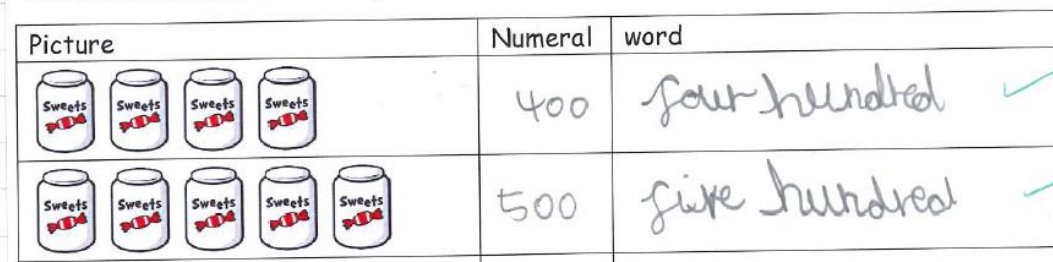 Picture Numeral word
Sweets Sweets Sweets Sweets 400 four hundred
Sweets Sweets Sweets Sweets Sweets 500 five hundred